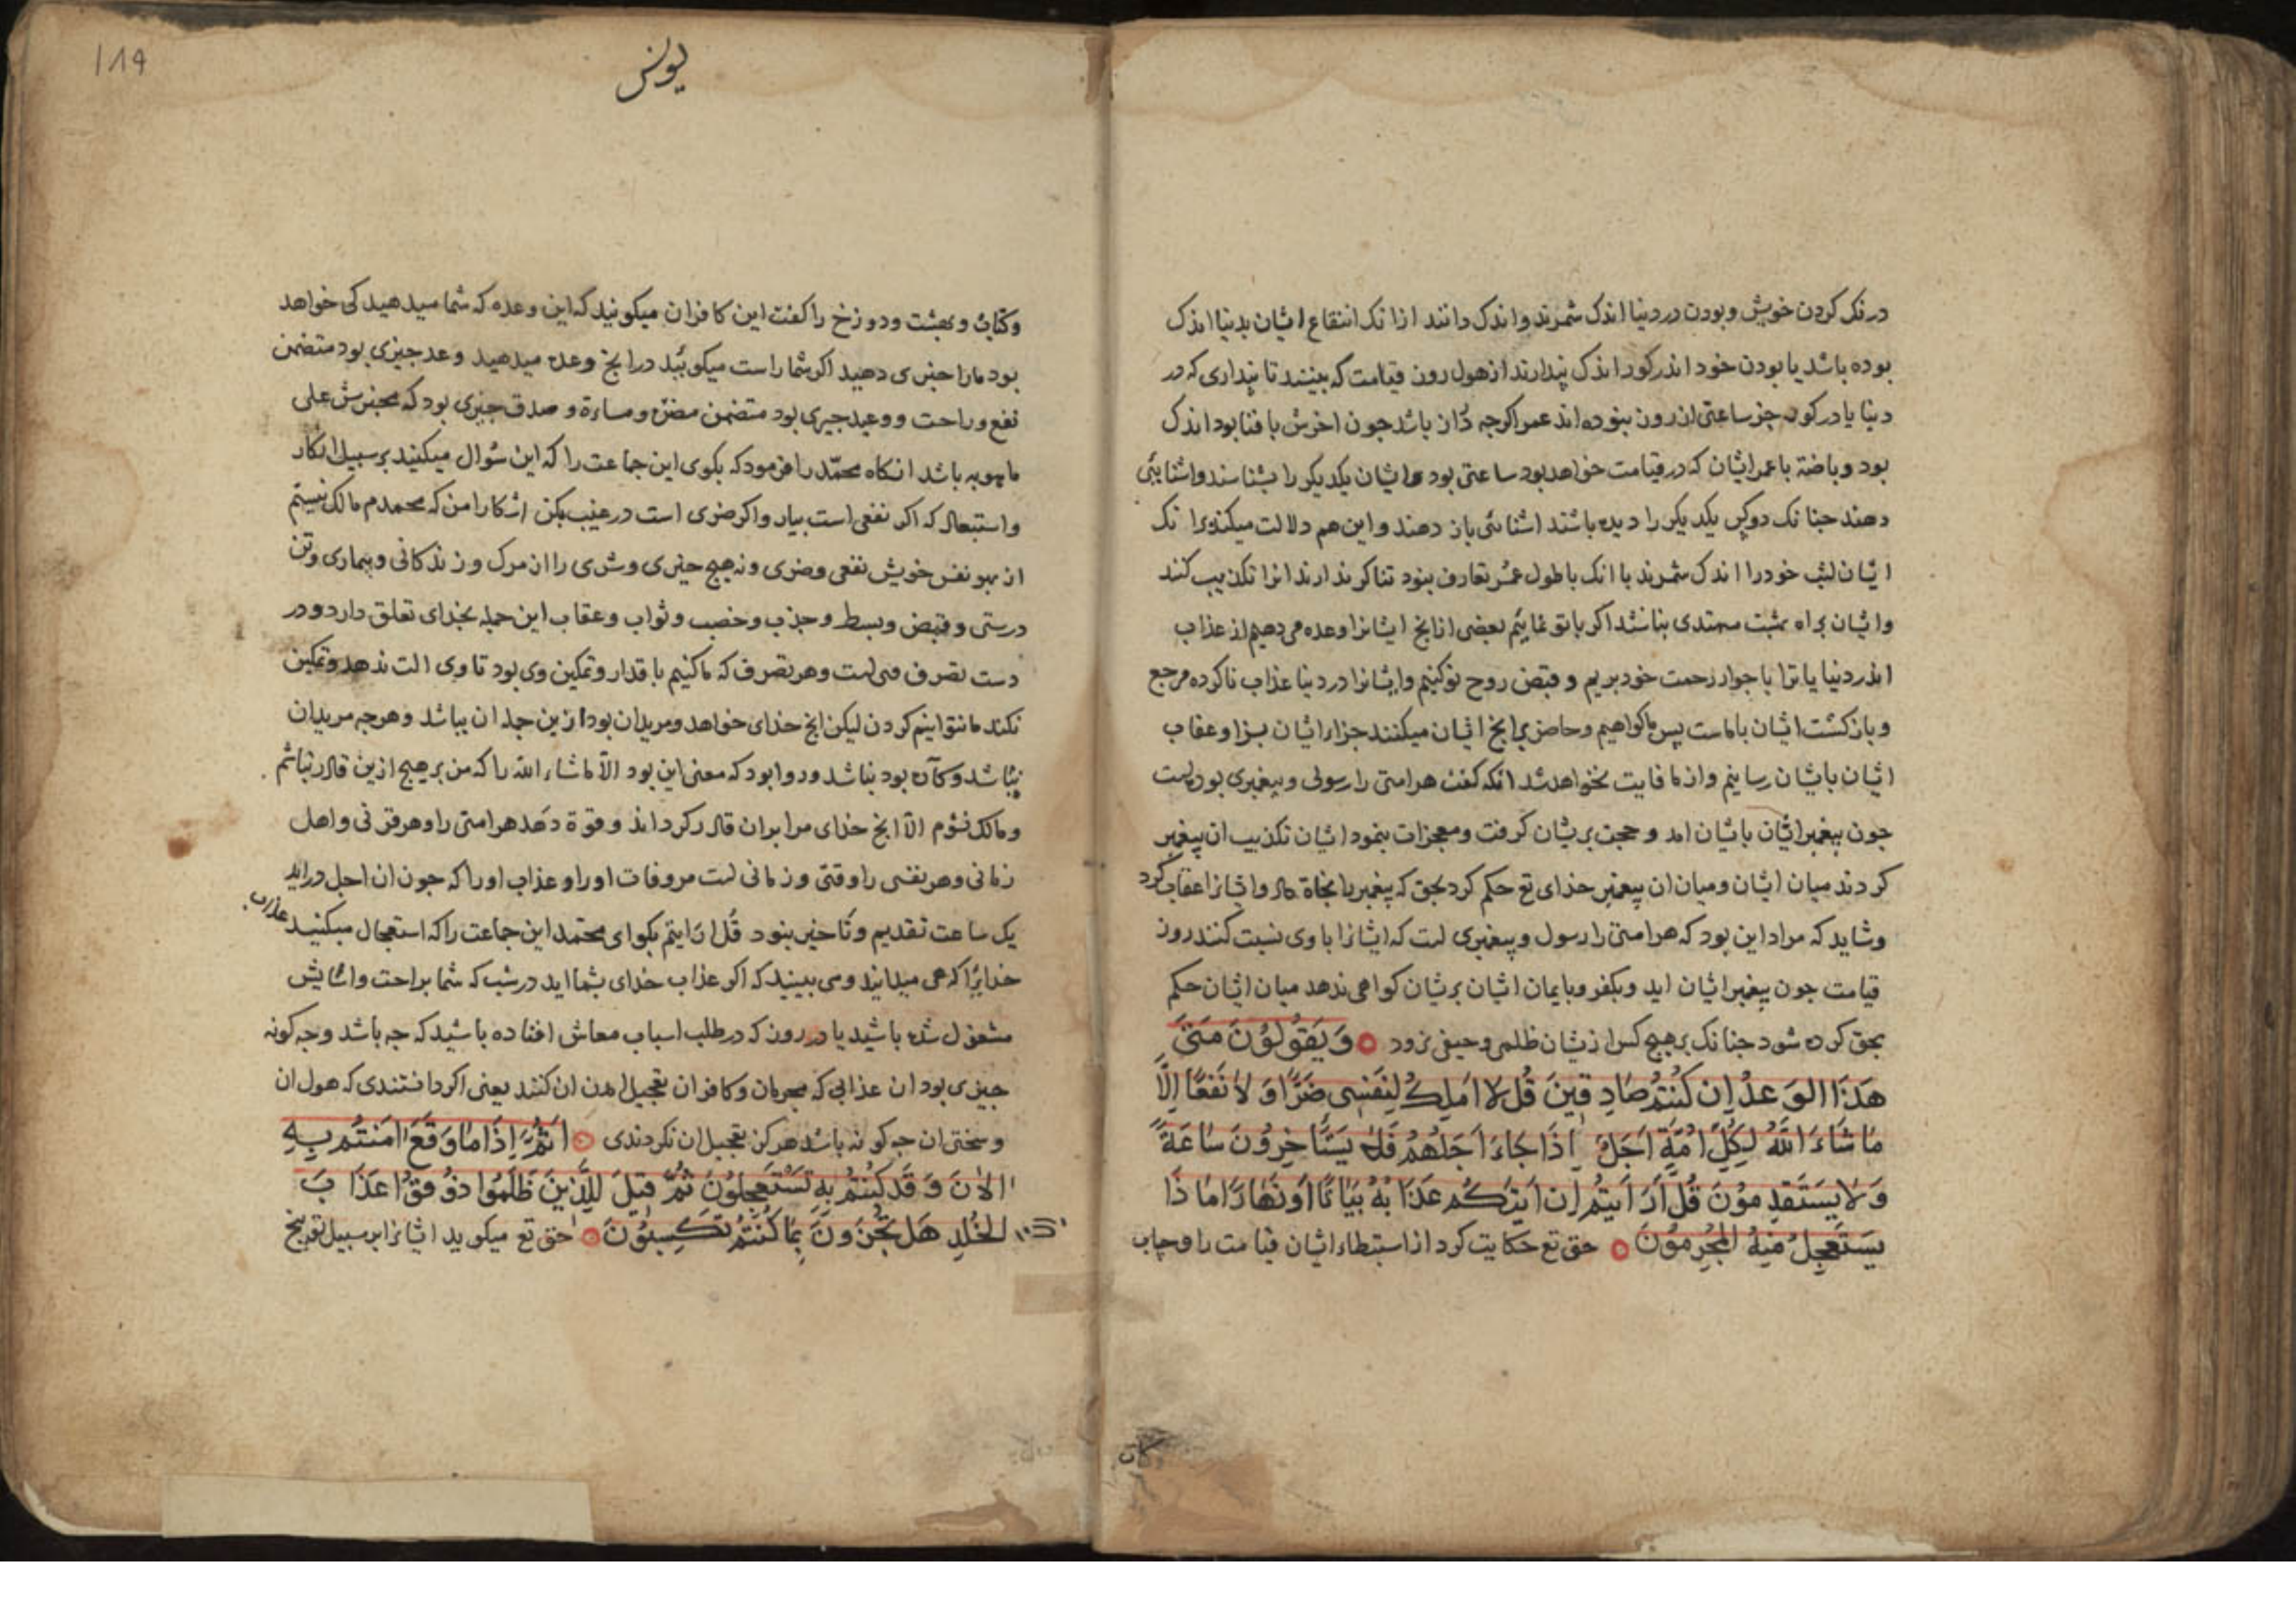 در نکر کردن خویش و بودن در دنیا اندک شمرند و اندک دانند ازانک انتفاع ایشان بدنیا اندک
بوده باشد یا بودن خود اندر کور اندک پندارند از هول روز قیامت که بینند تا پنداری که در
دنیا یا در کور جز ساعتی از روز ببنوده اند عمر اکرجه دراز باشد جون اخرش با فنا بود اندک
بود و باضافة با عمر ایشان که در قیامت خواهد بود ساعتی بود و ایشان یکدیکر را بشناسند و اشنایی
دهند جنانک دو کس یکدیکر را دیده باشند اشنائی باز دهند و این هم دلالت میکند برانک
ایشان لبث خود را اندک شمرند با انک با طول عمر تعارف بنود تناکر ندارند انرا تکذیب کنند
و ایشان براه بهشت مهتدی بناشند اکر با تو نمایئم بعضی ازانج ایشانرا وعده می دهیم از عذاب
اندر دنیا یا ترا با جوار رحمت خود بریم و قبض روح تو کنیم و ایشانرا در دنیا عذاب ناکرده مرجع
و بازکشت ایشان باماست پس ما کواهیم و حاضر برانج ایشان میکنند جزاء ایشان بسزا و عقاب
ایشان بایشان رسانیم و از ما فایت نخواهد شد انکه کفت هر امتی را رسولی و پیغمبری بودست
جون پیغمبر ایشان بایشان امد و حجت بریشان کرفت و معجزات بنمود ایشان تکذیب ان پیغمبر
کردند میان ایشان و میان ان پیغمبر خدای تع حکم کرد بحق که پیغمبر با نجاة داد و ایشانرا عقاب کرد
و شاید که مراد این بود که هر امتی را رسول و پیغمبری است که ایشانرا با وی نسبت کنند روز
قیامت جون پیغمبر ایشان اید و بکفر و بایمان ایشان بریشان کواهی بدهد میان ایشان حکم
بحق کرده شود جنانک بر هیچ کس از یشان ظلمی و حیفی نرود وَ يَقُولُونَ مَتَىٰ
هَذَا الوَعْدُ اِن كُنتُم صَادِقينَ قُل لا اَملِكُ لِنَفسِى ضَرًّا وَ لا نَفعًا اِلَّا
مَا شَاءَ اللّٰهُ لِكُلِّ اُمَّةٍ اَجَلٌ اِذَا جَاءَ اَجَلُهُم فَلا يَستَاخِرُونَ سَاعَةً
وَ لا يَستَقدِمُونَ قُل اَرَاَيتُم اِن اَتيٰكُم عَذَابُهُ بَيَاتًا اَو نَهَارًا مَا ذَا
يَستَعجِلُ مِنهُ المُجرِمُونَ حق تع حکایت کرد از استبطاء ایشان قیامت را و حساب
یونس
۱۸۹
و کتاب و بهشت و دوزخ را کفت این کافران میکویند که این وعده که شما میدهید کی خواهد
بود ما را خبری دهید اکر شما راست میکویید درانج وعده میدهید وعد جیزی بود متضمن
نفع و راحت و وعید جیزی بود متضمن مضرة و مساءة و صدق خبری بود که مخبرش علی
ما هو به باشد انکاه محمّد را فرمود که بکوی این جماعت را که این سؤال میکنند بر سبیل انکار
و استبعاد که اکر نفعی است بیار و اکر ضری است در غیب مکن اشکارا من که محمدم مالک نیستم
از بهر نفس خویش نفعی و ضری و نه هیچ خیری و شری را از مرک و زندکانی و بیماری و تن
درستی و قبض و بسط و جذب و خصب و ثواب و عقاب این جمله بخدای تعلق دارد و در
دست تصرف وی است و هر تصرف که ما کنیم باقدار و تمکین وی بود تا وی الت ندهد و تمکین
نکند ما نتوانیم کردن لیکن انج خدای خواهد و مریدان بود از ین جمله ان بباشد و هرجه مرید ان
نباشد و کاره بود نباشد و روا بود که معنی این بود الاّ ماشاء الله را که من بر هیج ازین قادر نباشم
و مالک نشوم الاّ انج خدای مرا بران قادر کرداند و قوة دهد هر امتی را و هر قرنی و اهل
زمانی و هر نفسی را وقتی و زمانی است مر وفات او را و عذاب او را که جون ان اجل دراید
یک ساعت تقدیم و تاخیر بنود قُل اَرَایتم بکو ای محمد این جماعت را که استعجال میکنید عذاب
خدایرا که می میدانید و می بینید که اکر عذاب خدای بشما اید در شب که شما براحت و اسایش
مشغول شده باشید یا در روز که در طلب اسباب معاش افتاده باشید که جه باشد و جه کونه
جیزی بود ان عذابی که مجرمان و کافران تعجیل امدن ان کنند یعنی اکر دانستندی که هول ان
و سختی ان جه کونه باشد هرکز تعجیل ان نکردندی اَثُمَّ اِذَا مَا وَقَعَ اٰمَنتُم بِهِ
الاٰنَ وَ قَد كُنتُم بِهِ تَستَعجِلُونَ ثُمَّ قيلَ لِلَّذينَ ظَلَمُوا ذُوقُوا عَذَابَ
الخُلدِ هَل تُجزَونَ اِلَّا بِمَا كُنتُم تَكسِبُونَ حق تع میکوید ایشانرا بر سبیل توبیخ